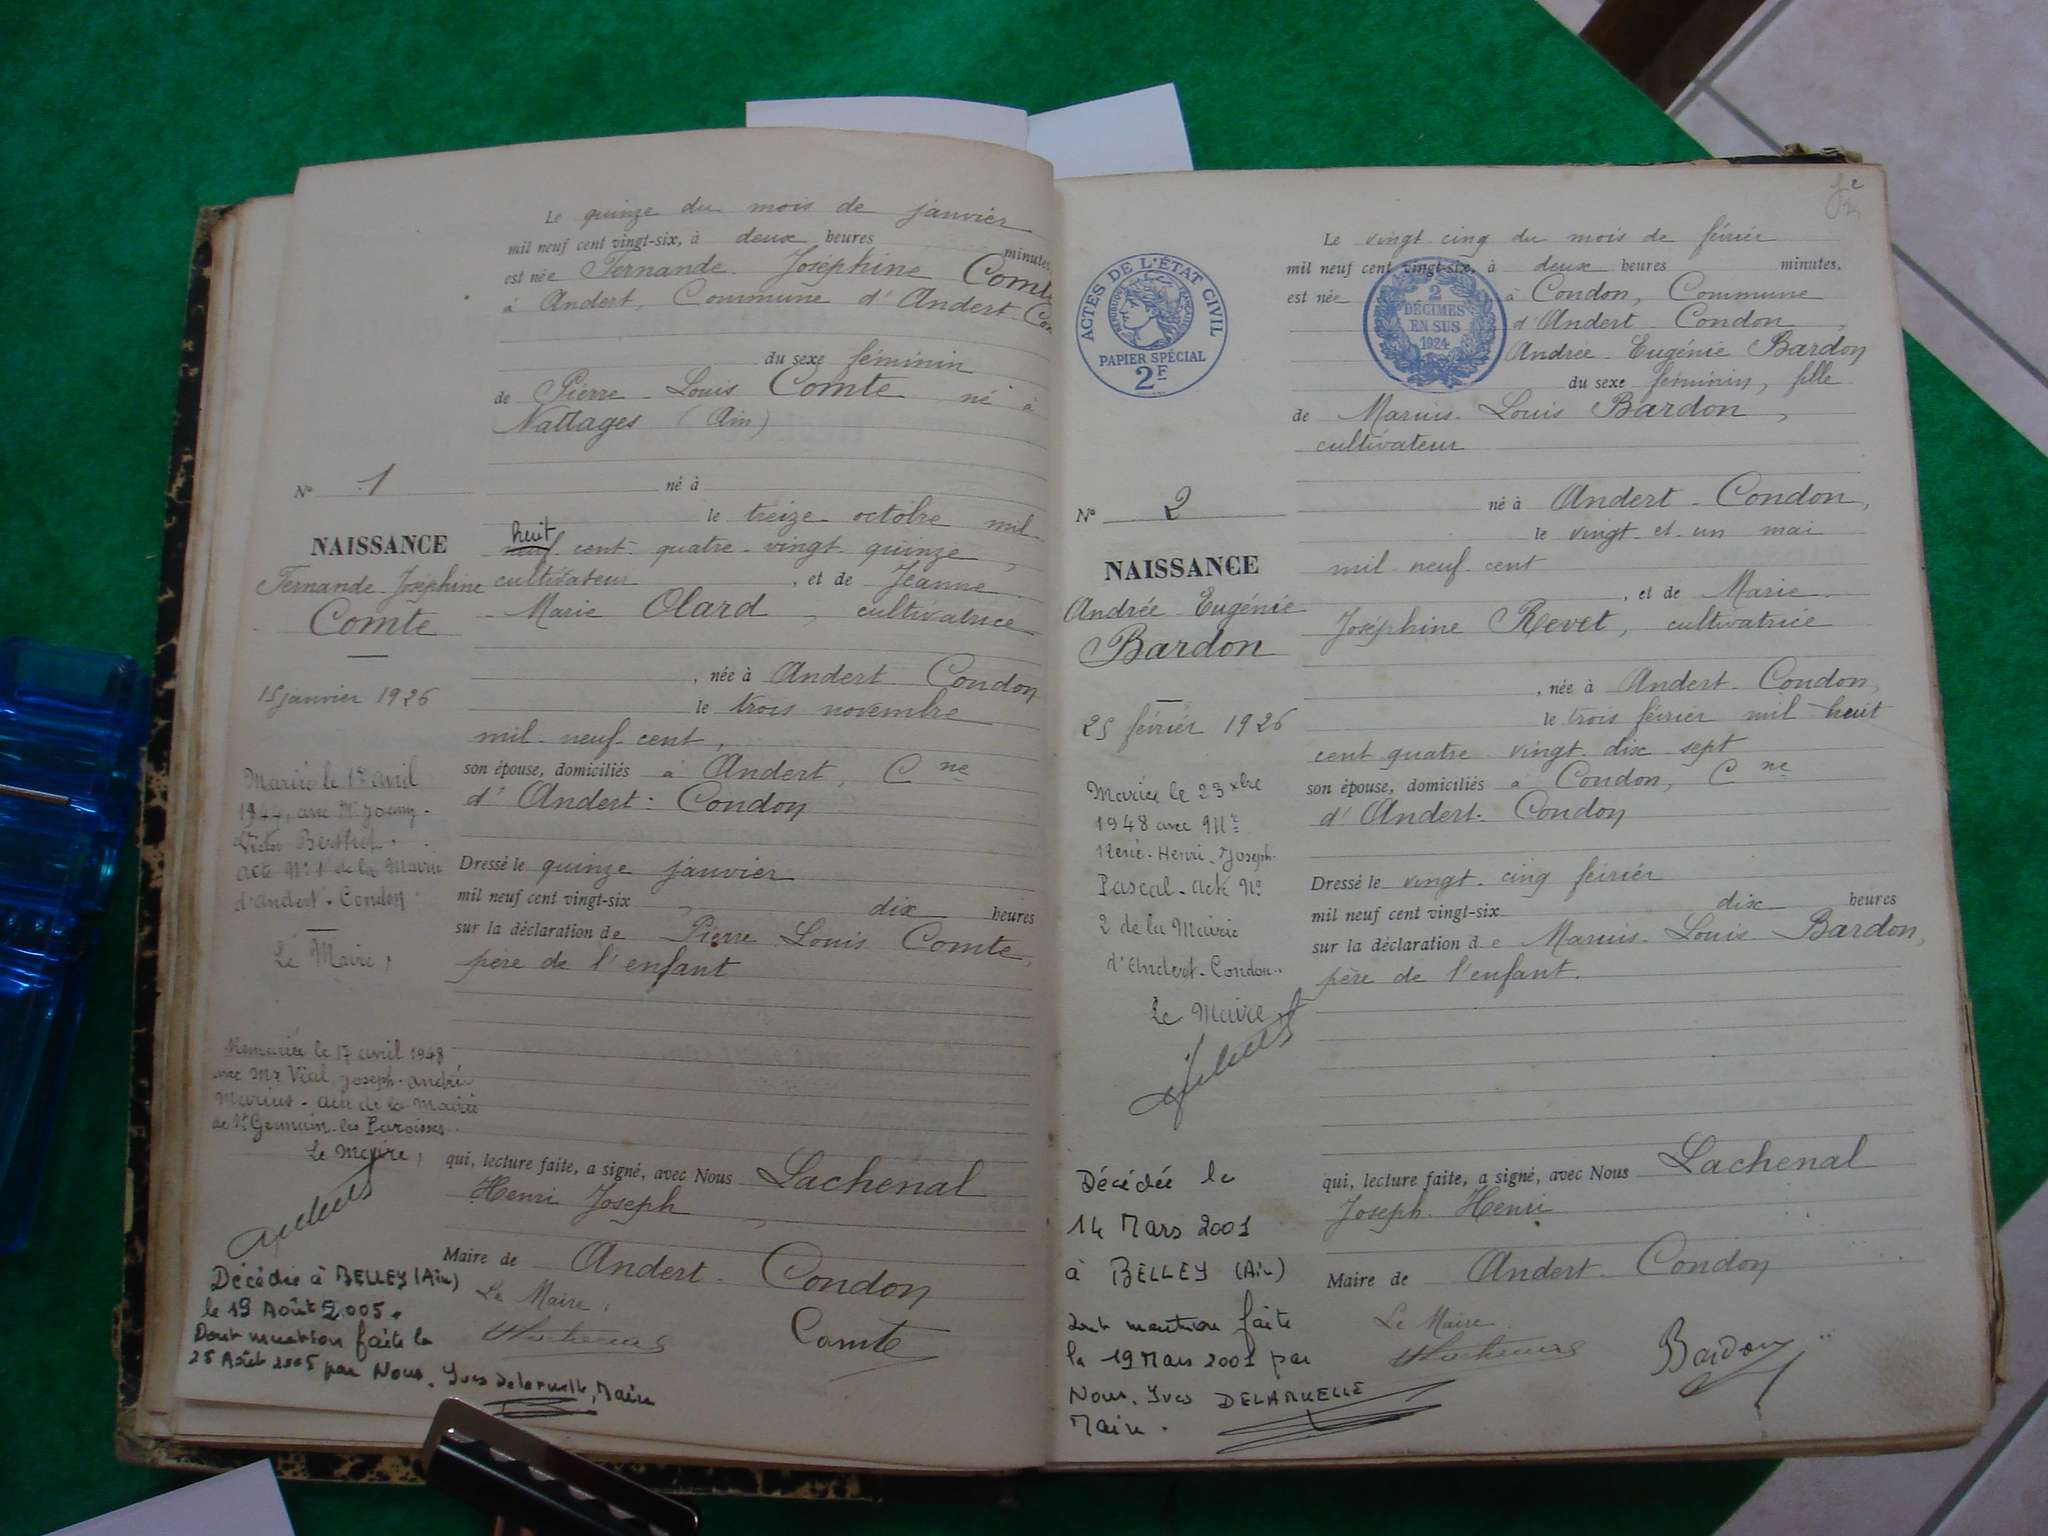 Le quinze du mois de janvier
mil neuf cent vingt-six, à deux heures minutes,
est née Fernande Joséphine Comte
à Andert, Commune d'Andert-Con
du sexe féminin
de Pierre Louis Comte né à
Nattages (Ain)
N° 1
né à
le treize octobre mil
huit
neuf cent quatre-vingt quinze,
NAISSANCE
cultivateur, et de Jeanne
Fernande Joséphine
Marie Olard, cultivatrice
Comte
, née à Andert-Condon
15 janvier 1926
le trois novembre
mil neuf cent,
son épouse, domiciliés à Andert, Cne
d'Andert-Condon
Mariée le 1er avril
1944, avec Mr Joanny-
Victor Berthet.
acte N° 1 de la Mairie
d'Andert-Condon
Le Maire,
Dressé le quinze janvier
mil neuf cent vingt-six, dix heures
sur la déclaration de Pierre Louis Comte,
père de l'enfant
Remariée le 17 avril 1948
avec Mr Vial Joseph-André
Marius - acte de la Mairie
de St Germain-les-Paroisses.
Le Maire,
qui, lecture faite, a signé, avec Nous Lachenal
Henri Joseph,
Maire de Andert-Condon
Le Maire,
Comte
Décédée à BELLEY (Ain)
le 19 Août 2005.
Dont mention faite le
25 Août 2005 par Nous. Yves Delaruelle, Maire
2
Le vingt cinq du mois de février
mil neuf cent vingt-six, à deux heures minutes,
est née à Condon, Commune
d'Andert-Condon,
Andrée-Eugénie Bardon
ACTES DE L'ÉTAT CIVIL
RÉPUBLIQUE FRANÇAISE
PAPIER SPÉCIAL
2F
2
DÉCIMES
EN SUS
1924
du sexe féminin, fille
de Marius-Louis Bardon,
cultivateur
N° 2
né à Andert-Condon,
le vingt-et-un mai
NAISSANCE
mil neuf cent
, et de Marie
Andrée-Eugénie
Joséphine Revet, cultivatrice
Bardon
, née à Andert-Condon,
25 février 1926
le trois février mil huit
cent quatre-vingt-dix-sept
son épouse, domiciliés à Condon, Cne
d'Andert-Condon
Mariée le 23 xbre
1948 avec Mr
René-Henri-Joseph
Pascal - acte N°
2 de la Mairie
d'Andert-Condon.
Le Maire,
Dressé le vingt-cinq février
mil neuf cent vingt-six dix heures
sur la déclaration de Marius-Louis Bardon,
père de l'enfant.
qui, lecture faite, a signé, avec Nous Lachenal
Joseph Henri
Maire de Andert-Condon
Le Maire
Bardon
Décédée le
14 Mars 2001
à BELLEY (Ain)
dont mention faite
le 19 Mars 2001 par
Nous. Yves DELARUELLE
Maire.